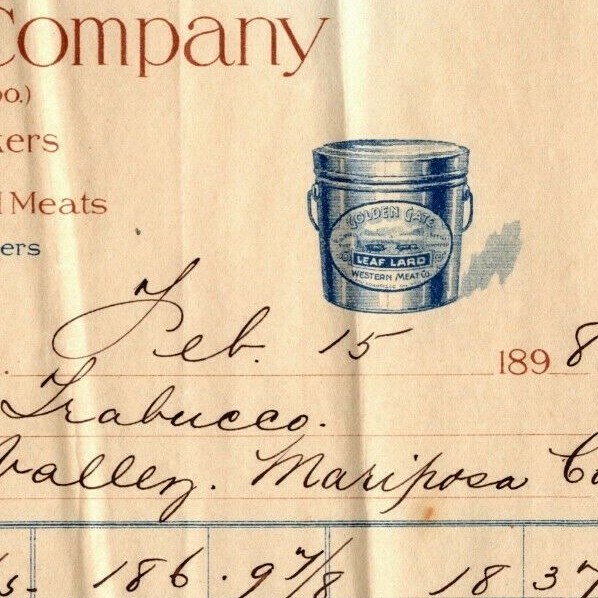 Company
Co.)
kers
Meats
ers
GOLDEN GATE
LEAF LARD
WESTERN MEAT CO.
Feb. 15 1898
Trabucco.
Valley. Mariposa Co
186. 9 7/8 18 37